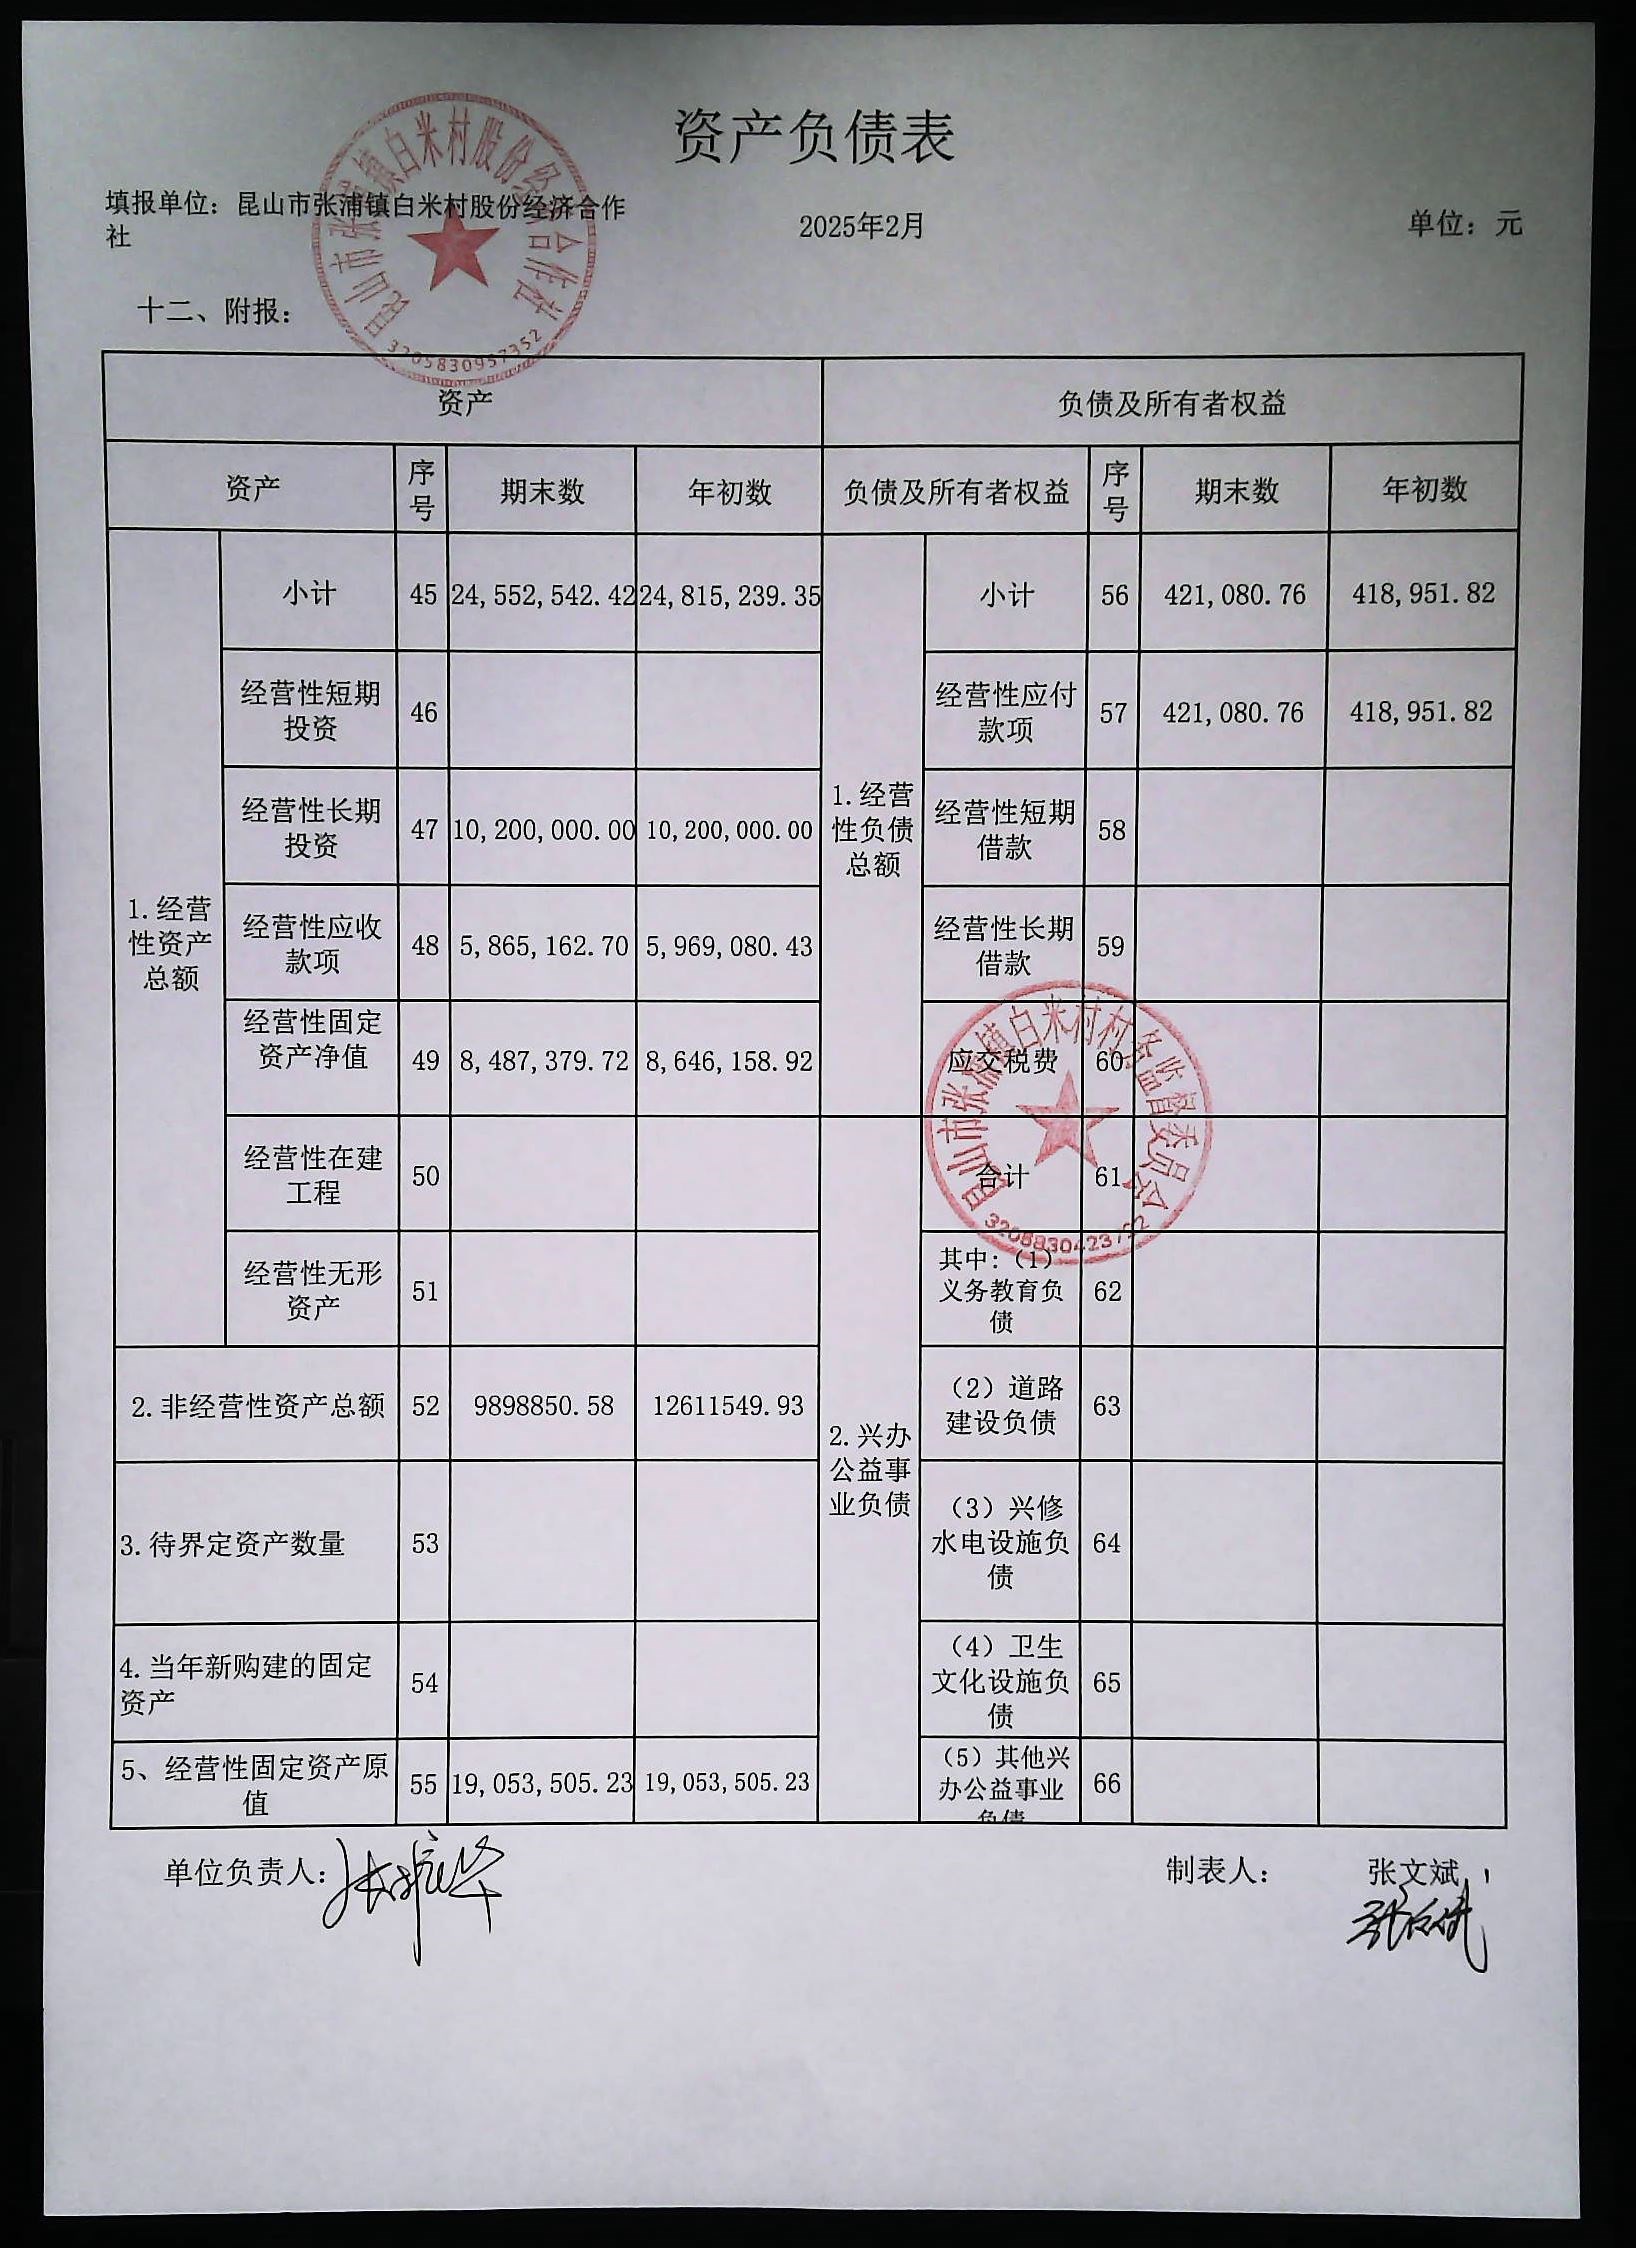 资产负债表
填报单位：昆山市张浦镇白米村股份经济合作
社
2025年2月
单位：元
昆山市张浦镇白米村股份经济合作社
3205830957352
十二、附报：
资产 负债及所有者权益
资产 序号 期末数 年初数 负债及所有者权益 序号 期末数 年初数
1.经营性资产总额
小计 45 24,552,542.42 24,815,239.35
1.经营性负债总额
小计 56 421,080.76 418,951.82
经营性短期投资 46 经营性应付款项 57 421,080.76 418,951.82
经营性长期投资 47 10,200,000.00 10,200,000.00 经营性短期借款 58
经营性应收款项 48 5,865,162.70 5,969,080.43 经营性长期借款 59
经营性固定资产净值 49 8,487,379.72 8,646,158.92 应交税费 60
经营性在建工程 50
2.兴办公益事业负债
合计 61
经营性无形资产 51 其中：（1）义务教育负债 62
2.非经营性资产总额 52 9898850.58 12611549.93 （2）道路建设负债 63
3.待界定资产数量 53 （3）兴修水电设施负债 64
4.当年新购建的固定资产 54 （4）卫生文化设施负债 65
5、经营性固定资产原值 55 19,053,505.23 19,053,505.23 （5）其他兴办公益事业负债 66
昆山市张浦镇白米村村务监督委员会
单位负责人：
制表人： 张文斌